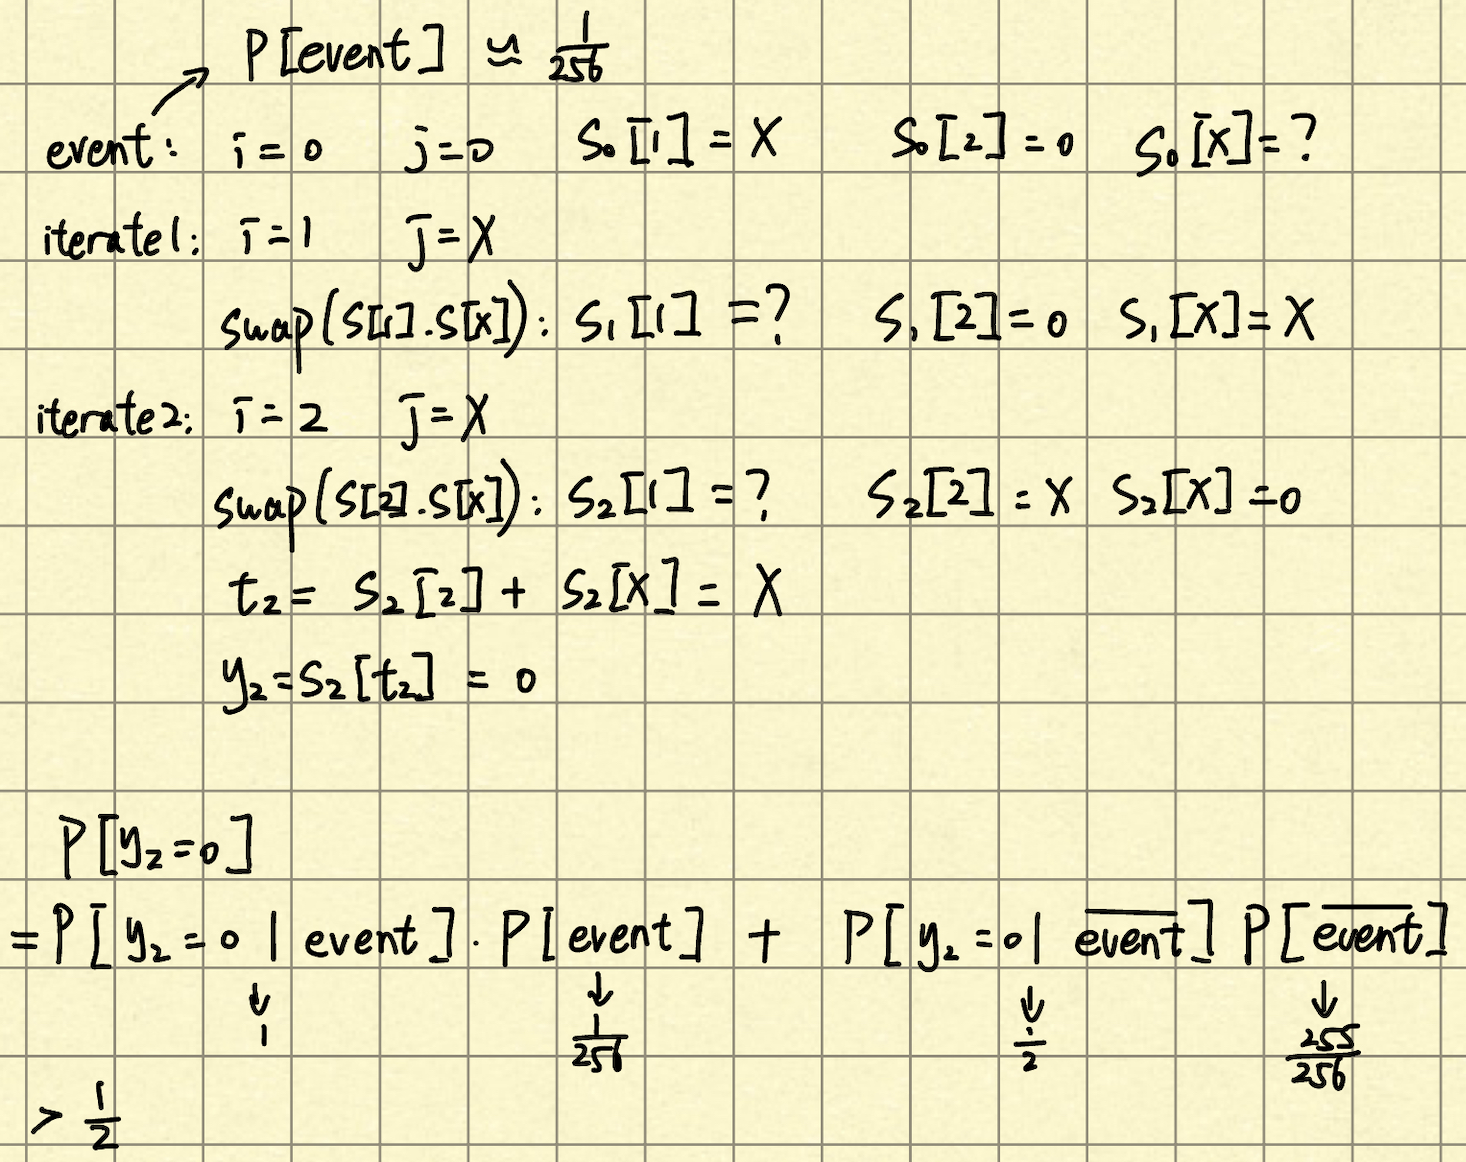 P[event] ≌ 1/256
event: i=0 j=0 S₀[1]=X S₀[2]=0 S₀[X]=?
iterate1: i=1 j=X
swap(S[1].S[X]): S₁[1]=? S₁[2]=0 S₁[X]=X
iterate2: i=2 j=X
swap(S[2].S[X]): S₂[1]=? S₂[2]=X S₂[X]=0
t₂= S₂[2]+S₂[X]= X
y₂=S₂[t₂] = 0
P[y₂=0]
=P[y₂=0|event]·P[event] + P[y₂=0|\overline{event}]P[\overline{event}]
↓ ↓ ↓ ↓
1 1/256 1/2 255/256
> 1/2